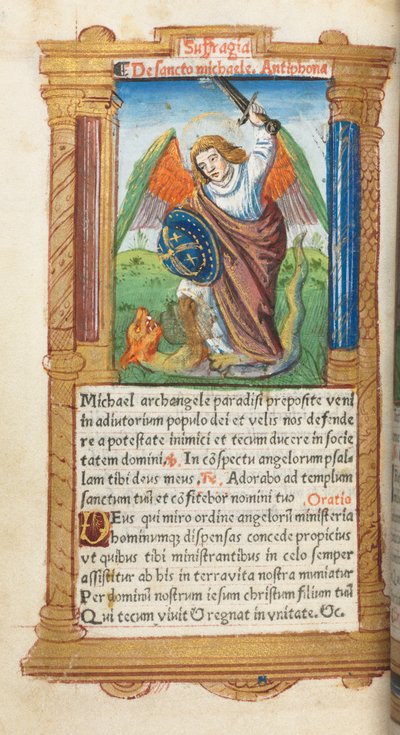 Suffragia
De sancto michaele. Antiphona
Michael archangele paradisi preposite veni
in adiutorium populo dei et velis nos defende
re a potestate inimici et tecum ducere in socie
tatem domini, ℣. In cōspectu angelorum psal
lam tibi deus meus, ℟. Adorabo ad templum
sanctum tuū et cōfitebor nomini tuo Oratio
DEus qui miro ordine angelorū ministeria
hominumqʒ dispensas concede propicius
vt quibus tibi ministrantibus in celo semper
assistitur ab his in terra vita nostra muniatur
Per dominū nostrum iesum christum filium tuū
Qui tecum vivit & regnat in vnitate. &c.